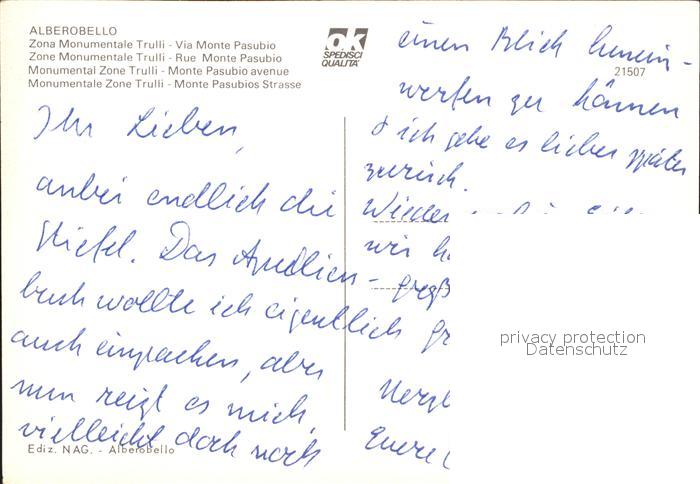 ALBEROBELLO
Zona Monumentale Trulli - Via Monte Pasubio
Zone Monumentale Trulli - Rue Monte Pasubio
Monumental Zone Trulli - Monte Pasubio avenue
Monumentale Zone Trulli - Monte Pasubios Strasse
ok
SPEDISCI
QUALITA'
21507
Ihr Lieben,
anbei endlich die
Stiefel. Das
buch wollte ich eigentlich
auch einpacken, aber
nun reizt es mich,
vielleicht doch noch
einen Blick hinein-
werfen zu können
& ich gebe es lieber später
zurück.
Wieder
wir
Herzl
Euere
Ediz. NAG. - Alberobello
privacy protection
Datenschutz